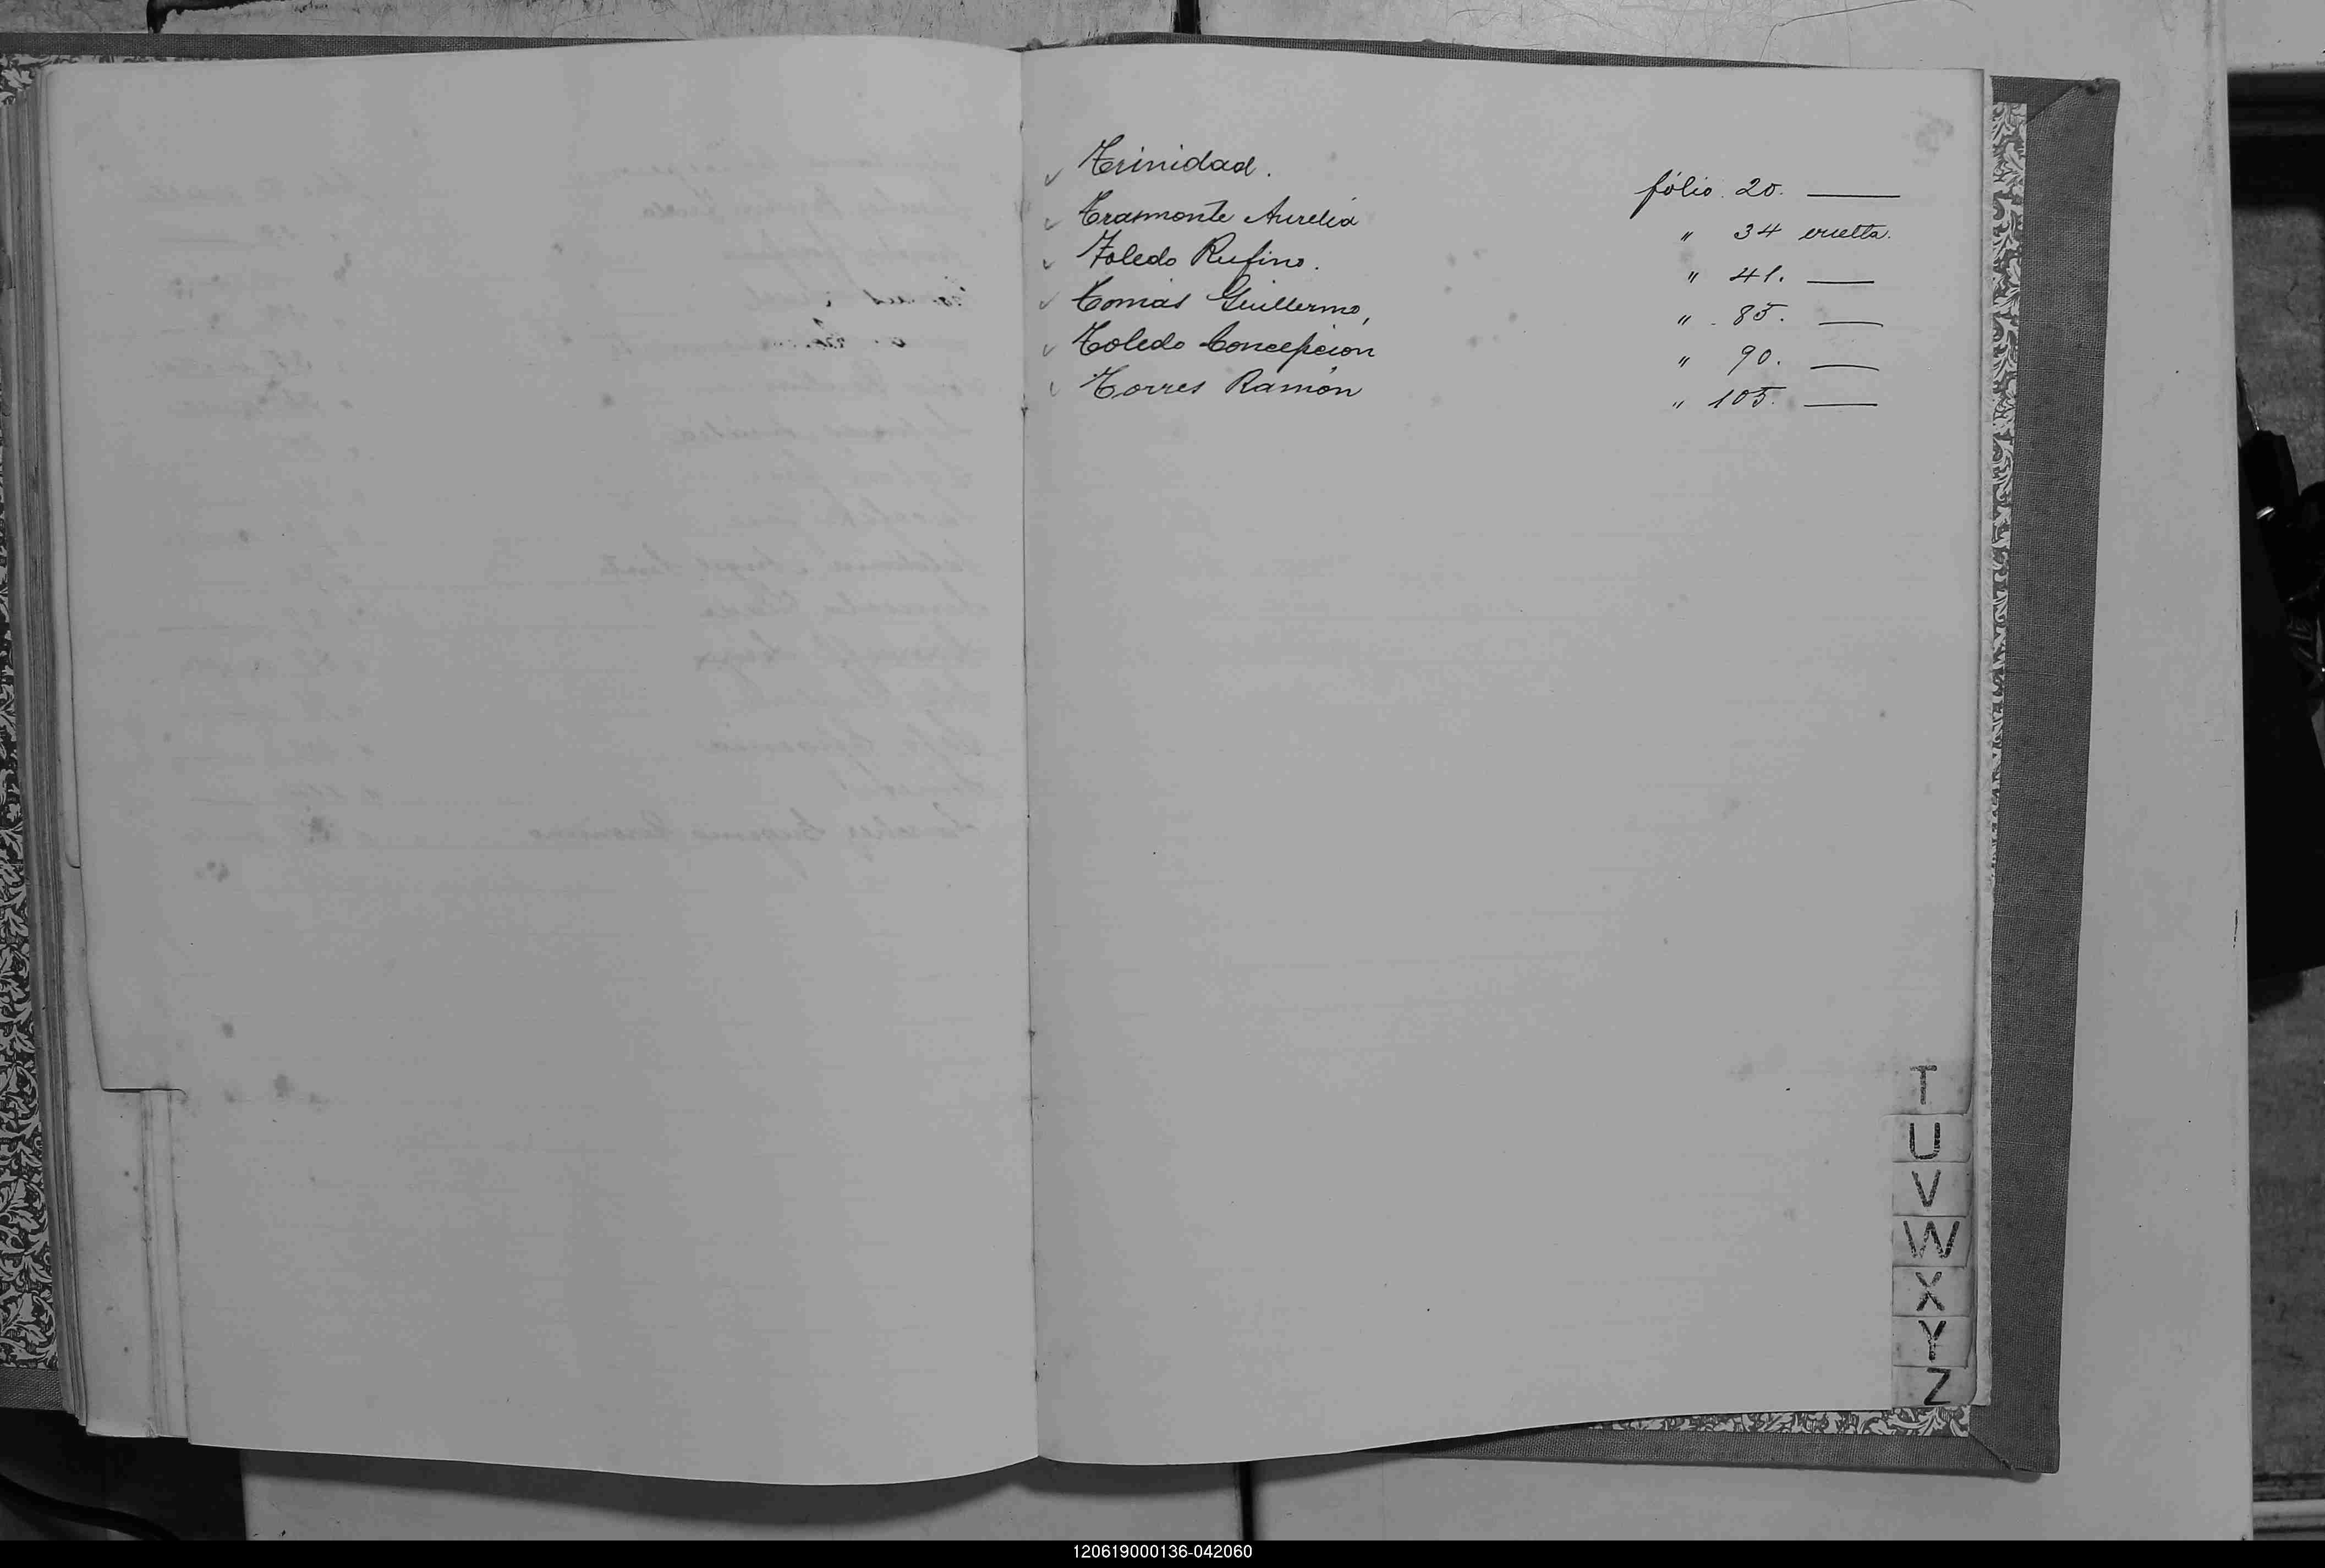 ✓ Trinidad. fólio. 20. ——
✓ Trasmonte Aurelia " 34 vuelta.
✓ Toledo Rufino. " 41. ——
✓ Tomás Guillermo, " . 85. ——
✓ Toledo Concepción " 90. ——
✓ Torres Ramón " 105. ——
T
U
V
W
X
Y
Z
120619000136-042060